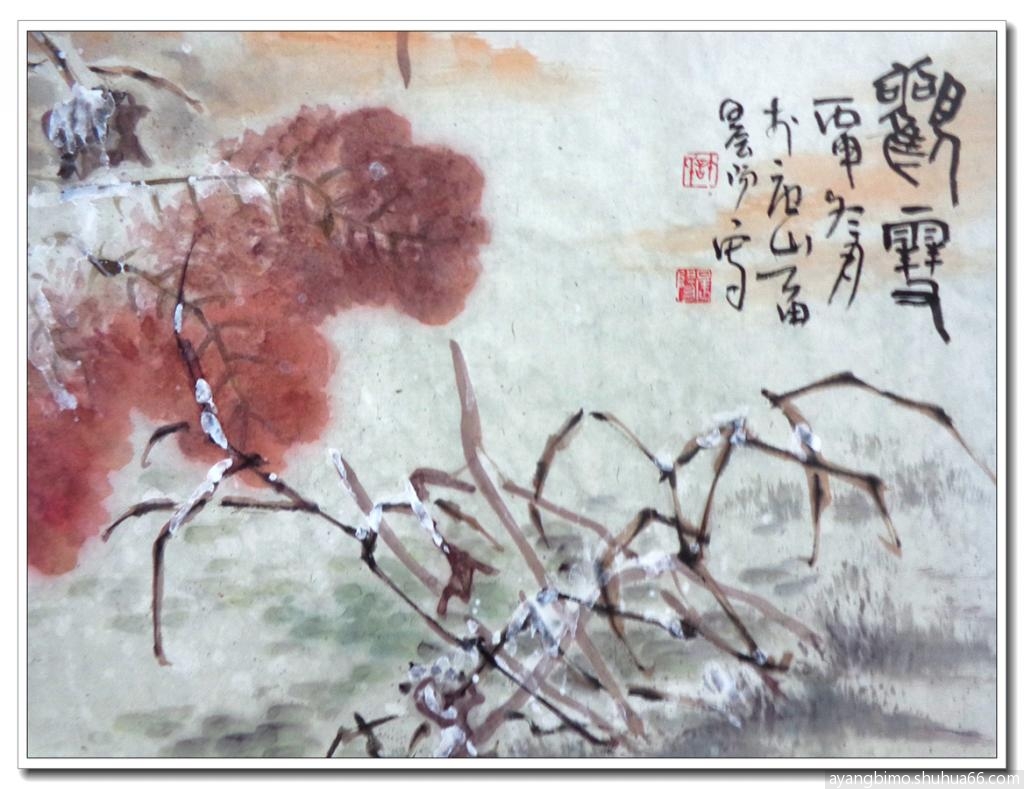 觀雪
丙申冬月
於唐山
晨阳写
ayangbimo.shuhua66.com